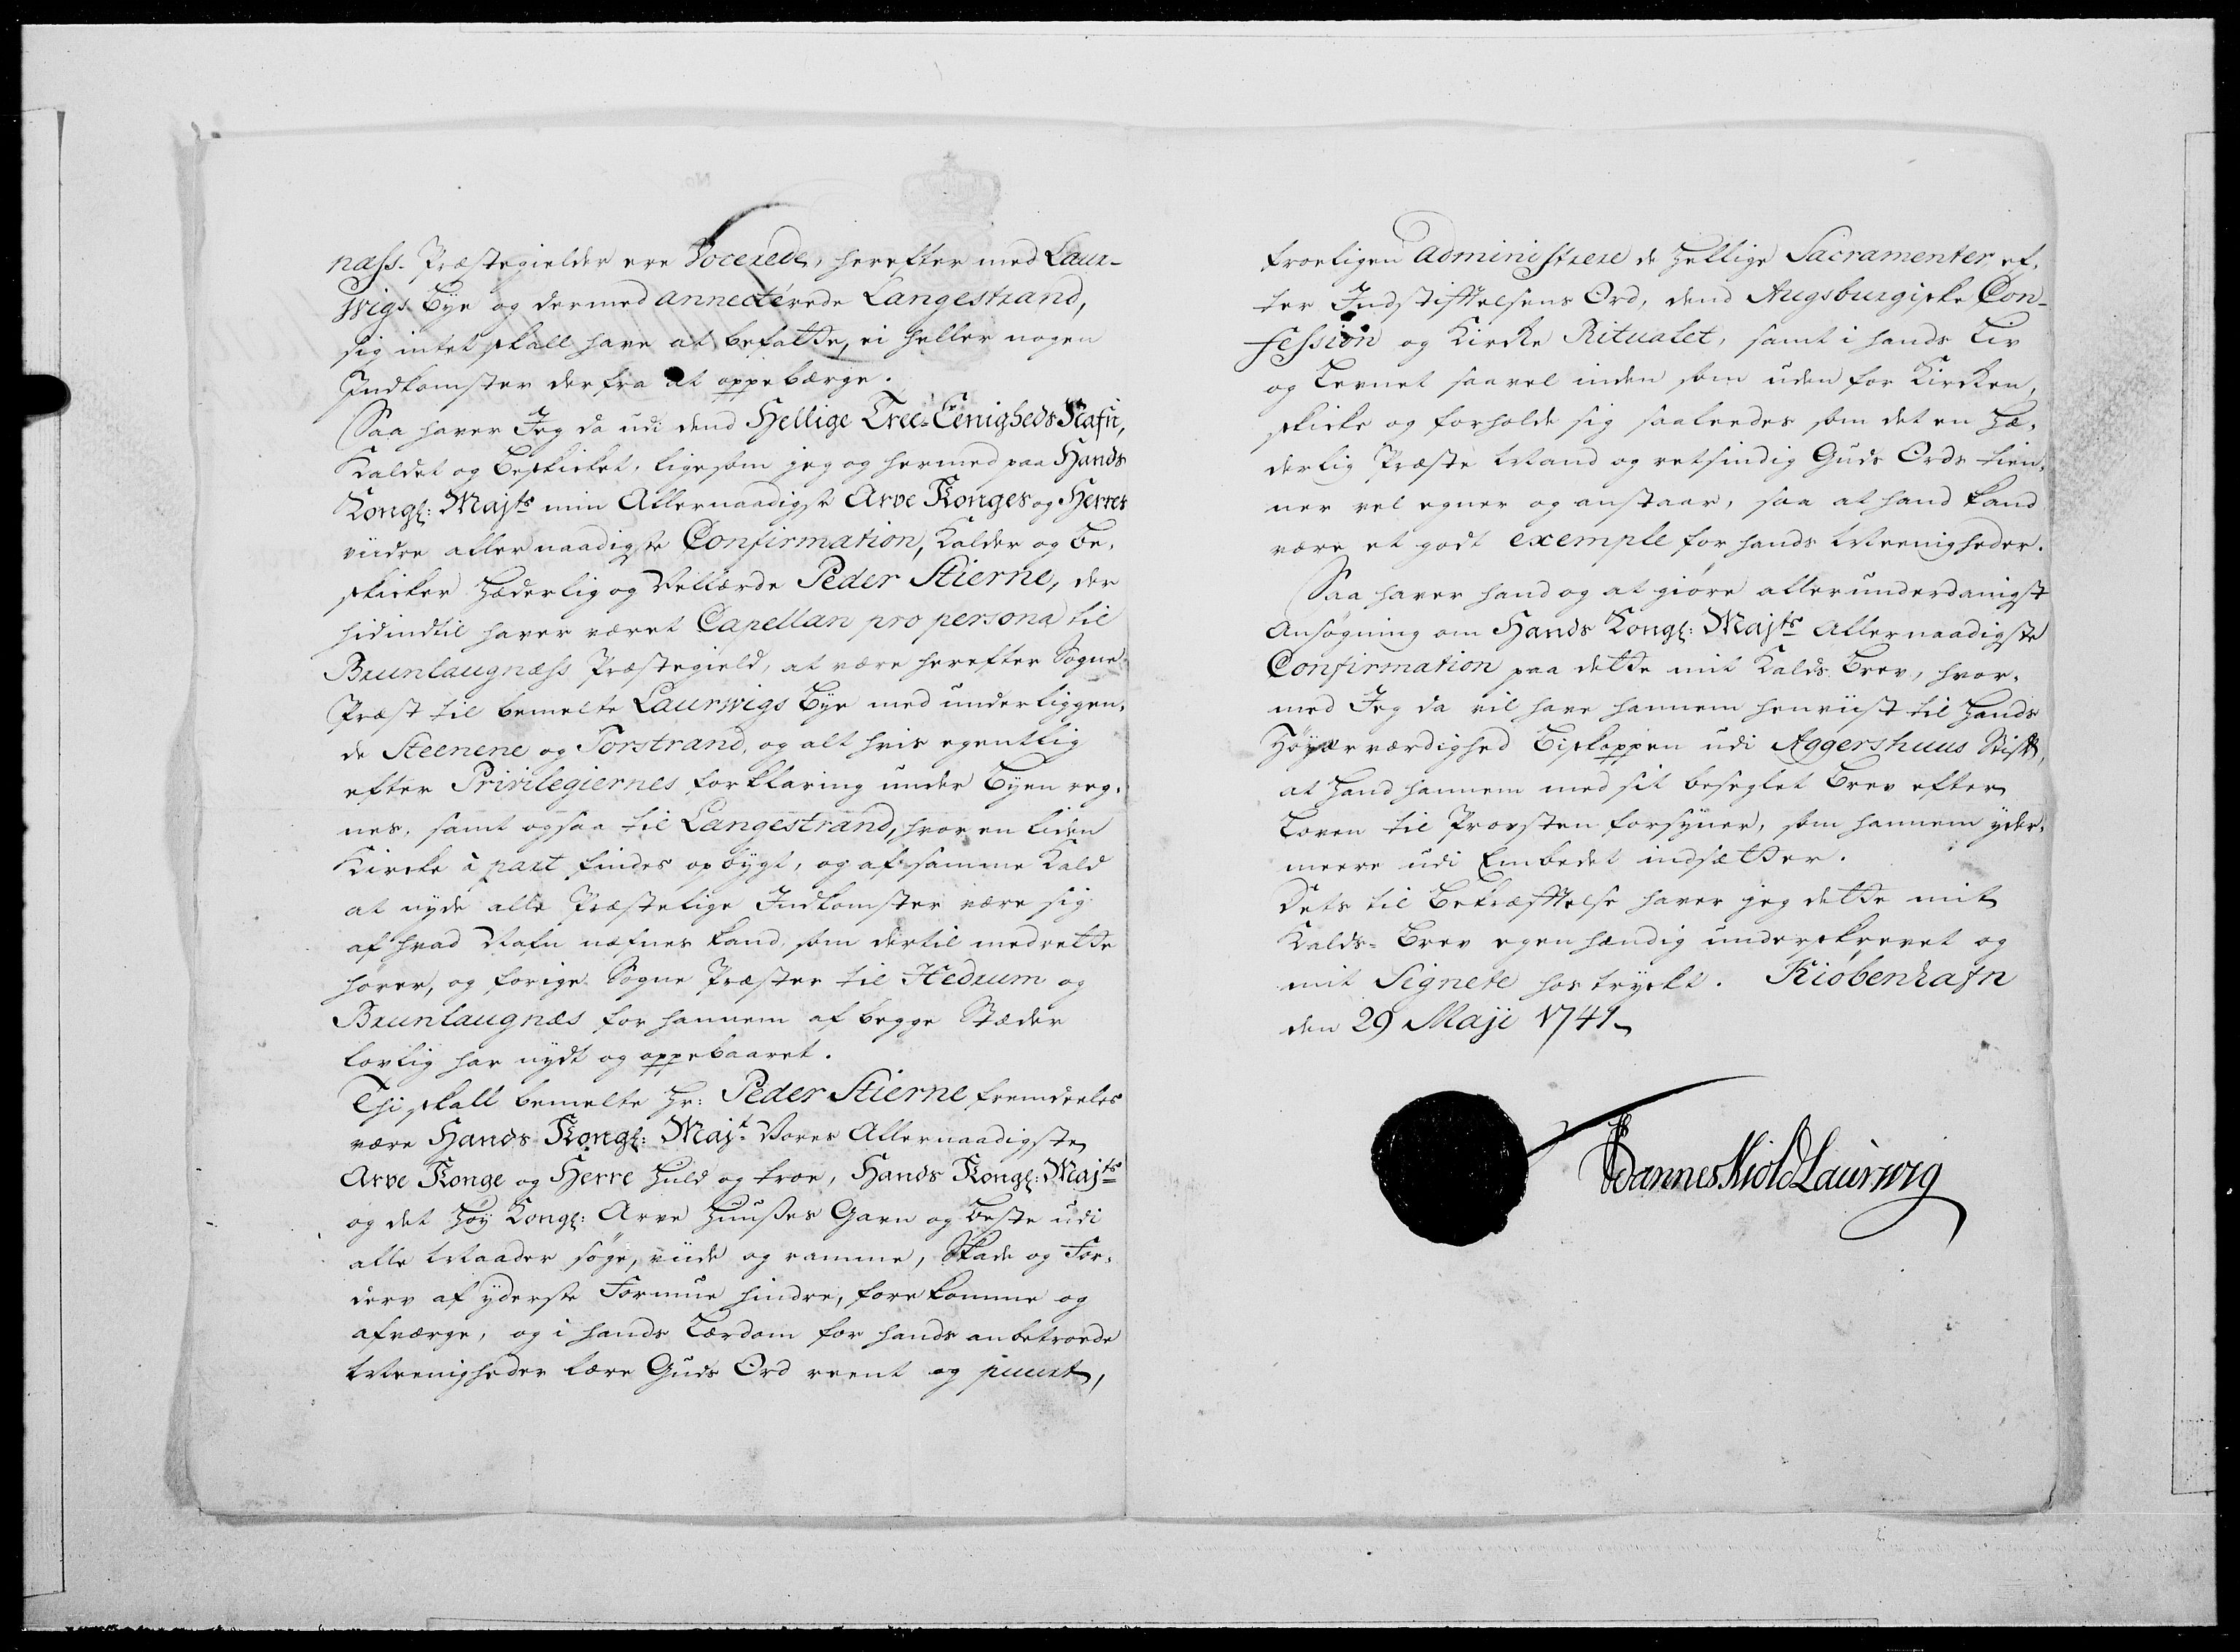 næss. Præstegielder ere Vocerede, herefter med Laur-
wigs Bye og dermed annecterede Langestrand,
sig intet skall have at befatte, ei heller nogen
Indkomster derfra at oppebærge.
Saa haver Jeg da udi dend Hellige Tree-Eenigheds Nafn,
Kaldet og Beskicket, ligesom jeg og hermed paa Hands
Kongl: Majts min Allernaadigste Arve Konges og Herres
viidre allernaadigste Confirmation, Kalder og be-
skicker Hæderlig og Vellærde Peder Stierne, der
hidindtil haver været Capellan pro persona til
Brunlaugnæss Præstegield, at være herefter Sogne-
Præst til bemelte Laurwigs Bye med underliggen-
de Steenene og Torstrand, og alt hvis egentlig
efter Privilegiernes forklaring under Byen reg-
nes, samt ogsaa til Langestrand, hvor en liden
Kircke à part findes opbygt, og af samme Kald
at nyde alle Præstelige Indkomster være sig
af hvad Nafn næfnes kand, som dertil medrette
hører, og forige Sogne Præster til Hedrum og
Brunlaugnæs for hannem af begge Stæder
lovlig har nydt og oppebaaret.
Thi skall bemelte Hr: Peder Stierne fremdeeles
være Hands Kongl: Majt. Vores Allernaadigste
Arve Konge og Herre Huld og troe, Hands Kongl: Majts
og det Høy Kongl: Arve Huuses Gavn og Beste udi
alle Maader søge, viide og ramme, Skade og For-
derv af yderste Formue hindre, forekomme og
afværge, og i hands Lærdom for hands anbetroede
Meenigheder lære Guds Ord reent og puurt,
troeligen administrere de Hellige Sacramenter, ef-
ter Indstiftelsens Ord, dend Augsburgiske Con-
fession og Kircke Ritualet, samt i hands Liv
og Levnet saavel inden som uden for Kircken,
skicke og forholde sig saaleedes som det en Hæ-
derlig Præste Mand og retsindig Guds Ords tien-
ner vel egner og anstaar, saa at hand kand
være et godt exempel for hands Meenigheder.
Saa haver hand og at giøre allerunderdanigst
Ansøgning om Hands Kongl: Majts Allernaadigste
Confirmation paa dette mit Kalds Brev, hvor-
med Jeg da vil have hannem henviist til Hands
Høyærværdighed Biskoppen udi Aggershuus Stift,
at Hand hannem med sit beseglet Brev efter
Loven til Provsten forsyner, som hannem yder-
meere udi Embedet indsætter.
Dets til Bekræftelse haver jeg dette mit
Kalds-Brev egenhændig underskrevet og
mit Signete hostryckt. Kiøbenhafn
den 29 Maji 1741
Danneskiold Laurwig